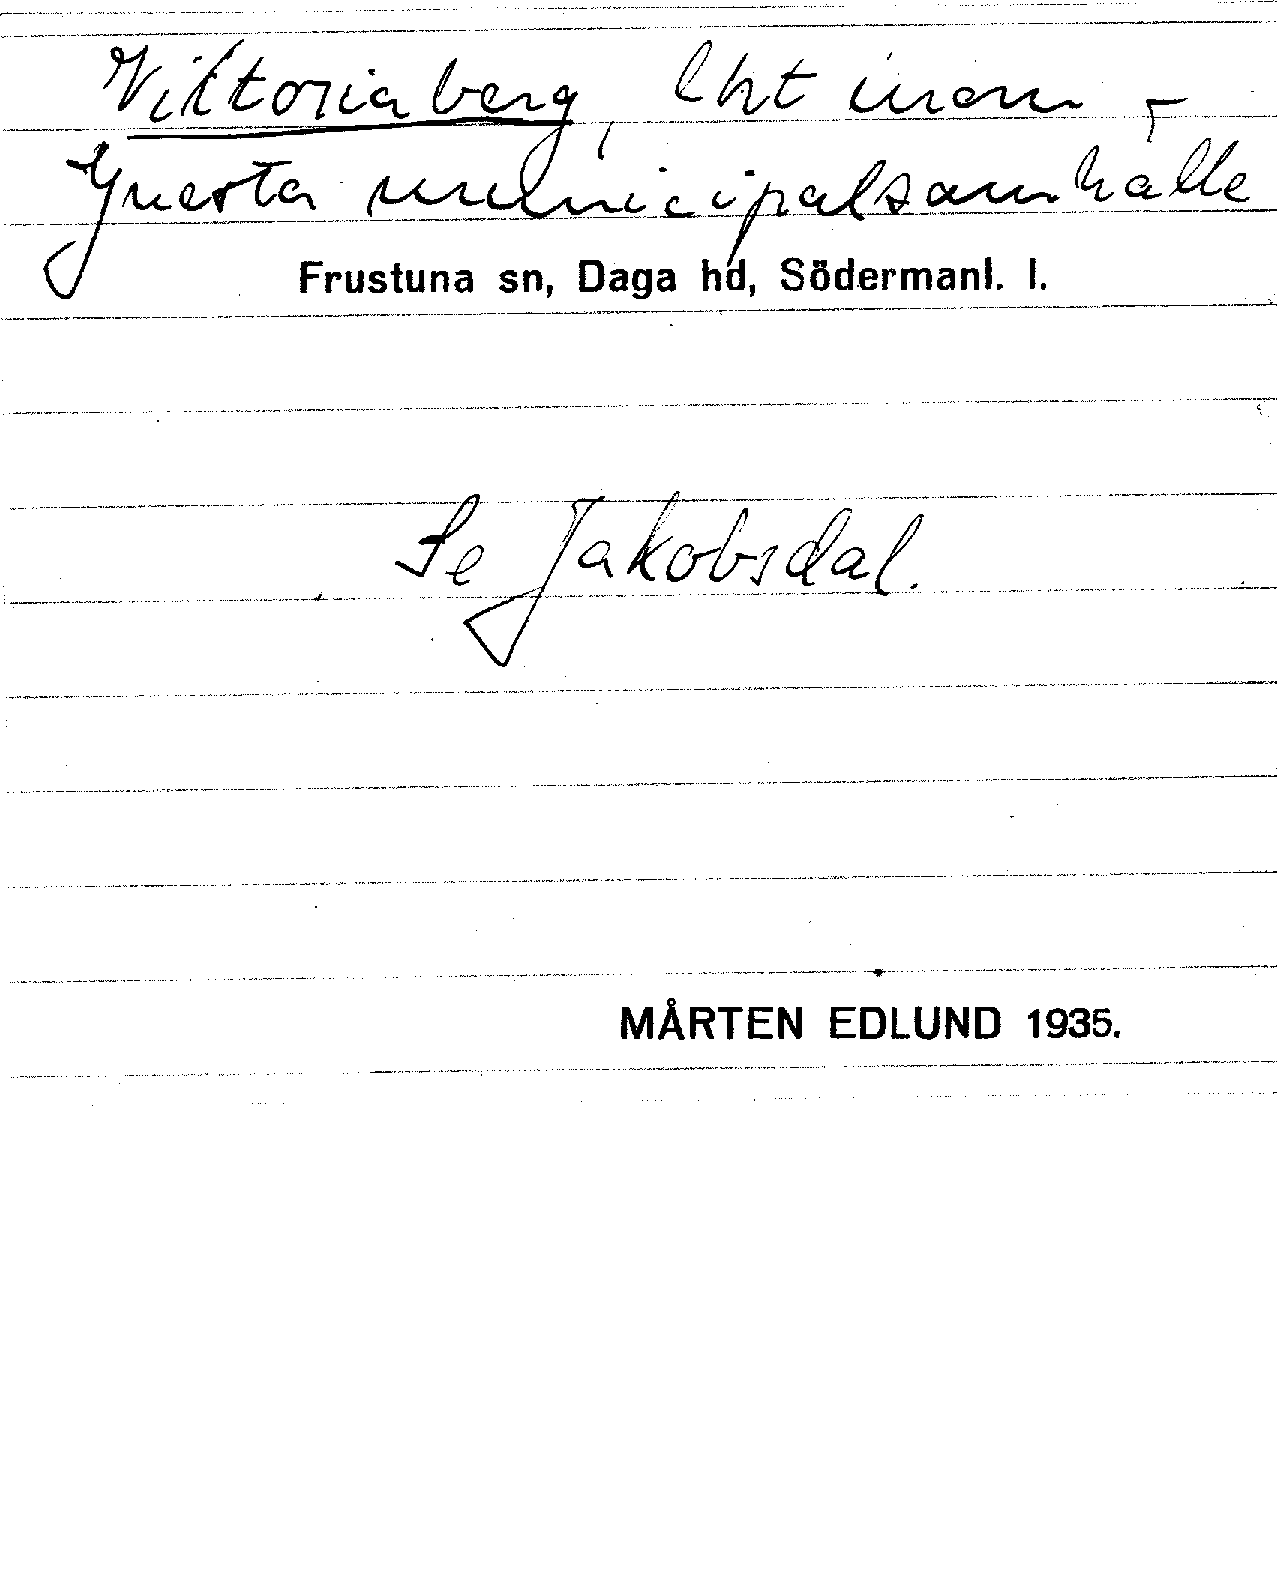 Viktoriaberg, lht inom
Gnesta municipalsamhälle
Frustuna sn, Daga hd, Södermanl. l.
Se Jakobsdal.
MÅRTEN EDLUND 1935.